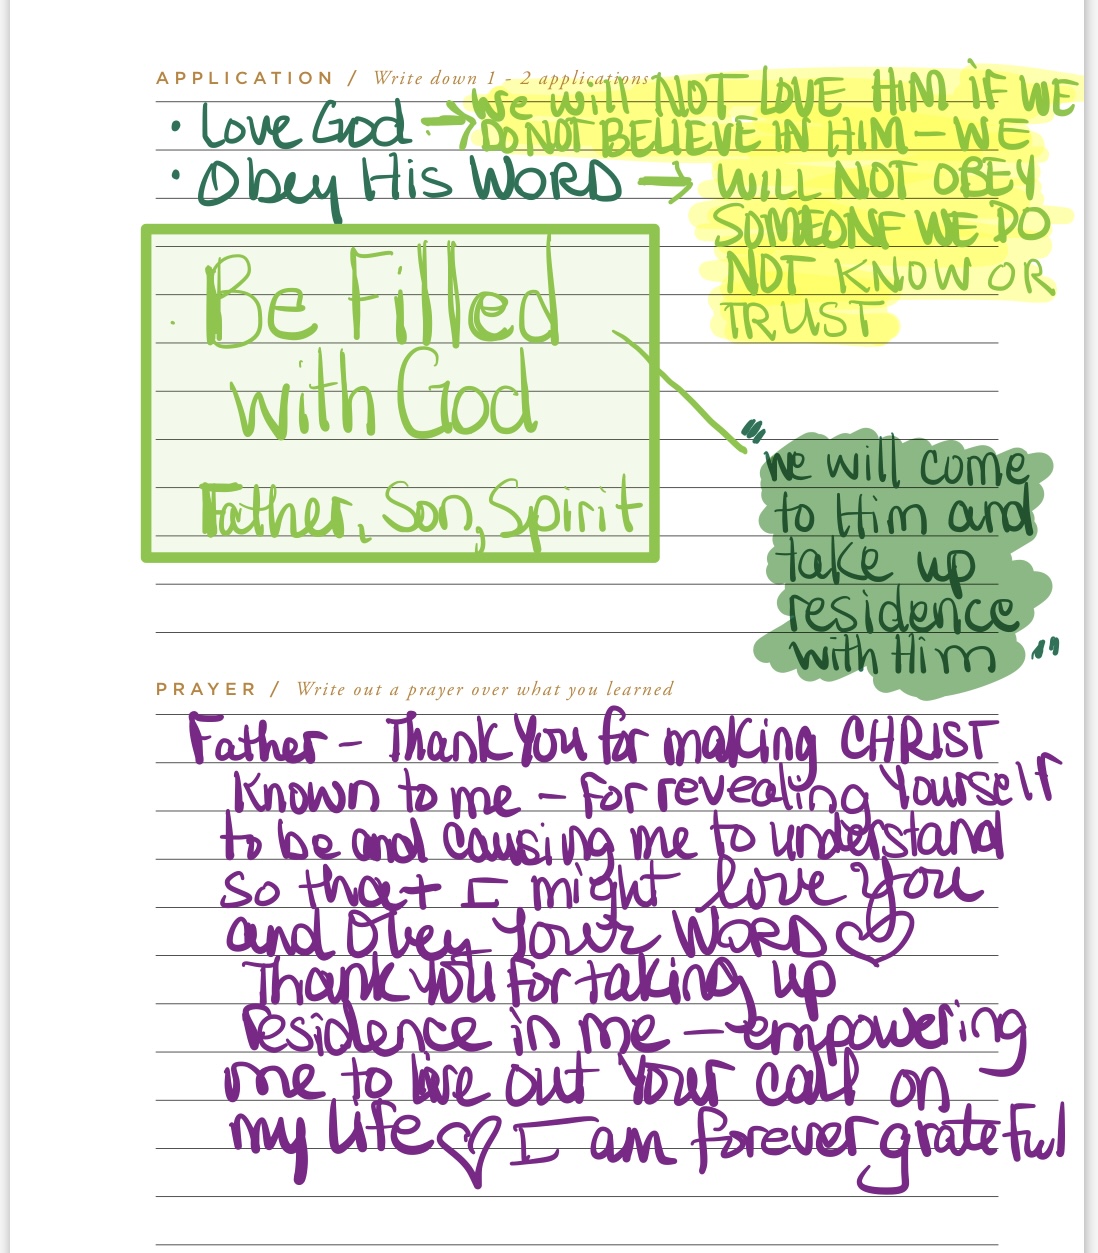 APPLICATION / Write down 1 - 2 applications
• Love God → We will NOT LOVE HIM IF WE
DO NOT BELIEVE IN HIM — WE
• Obey His WORD → WILL NOT OBEY
SOMEONE WE DO
NOT KNOW OR
TRUST
Be Filled
with God
Father, Son, Spirit
"we will come
to Him and
take up
residence
with Him"
PRAYER / Write out a prayer over what you learned
Father – Thank You for making CHRIST
known to me – for revealing Yourself
to be and causing me to understand
so that I might love You
and Obey Your WORD ♡
Thank You for taking up
residence in me — empowering
me to live out Your call on
my life ♡ I am forever grateful